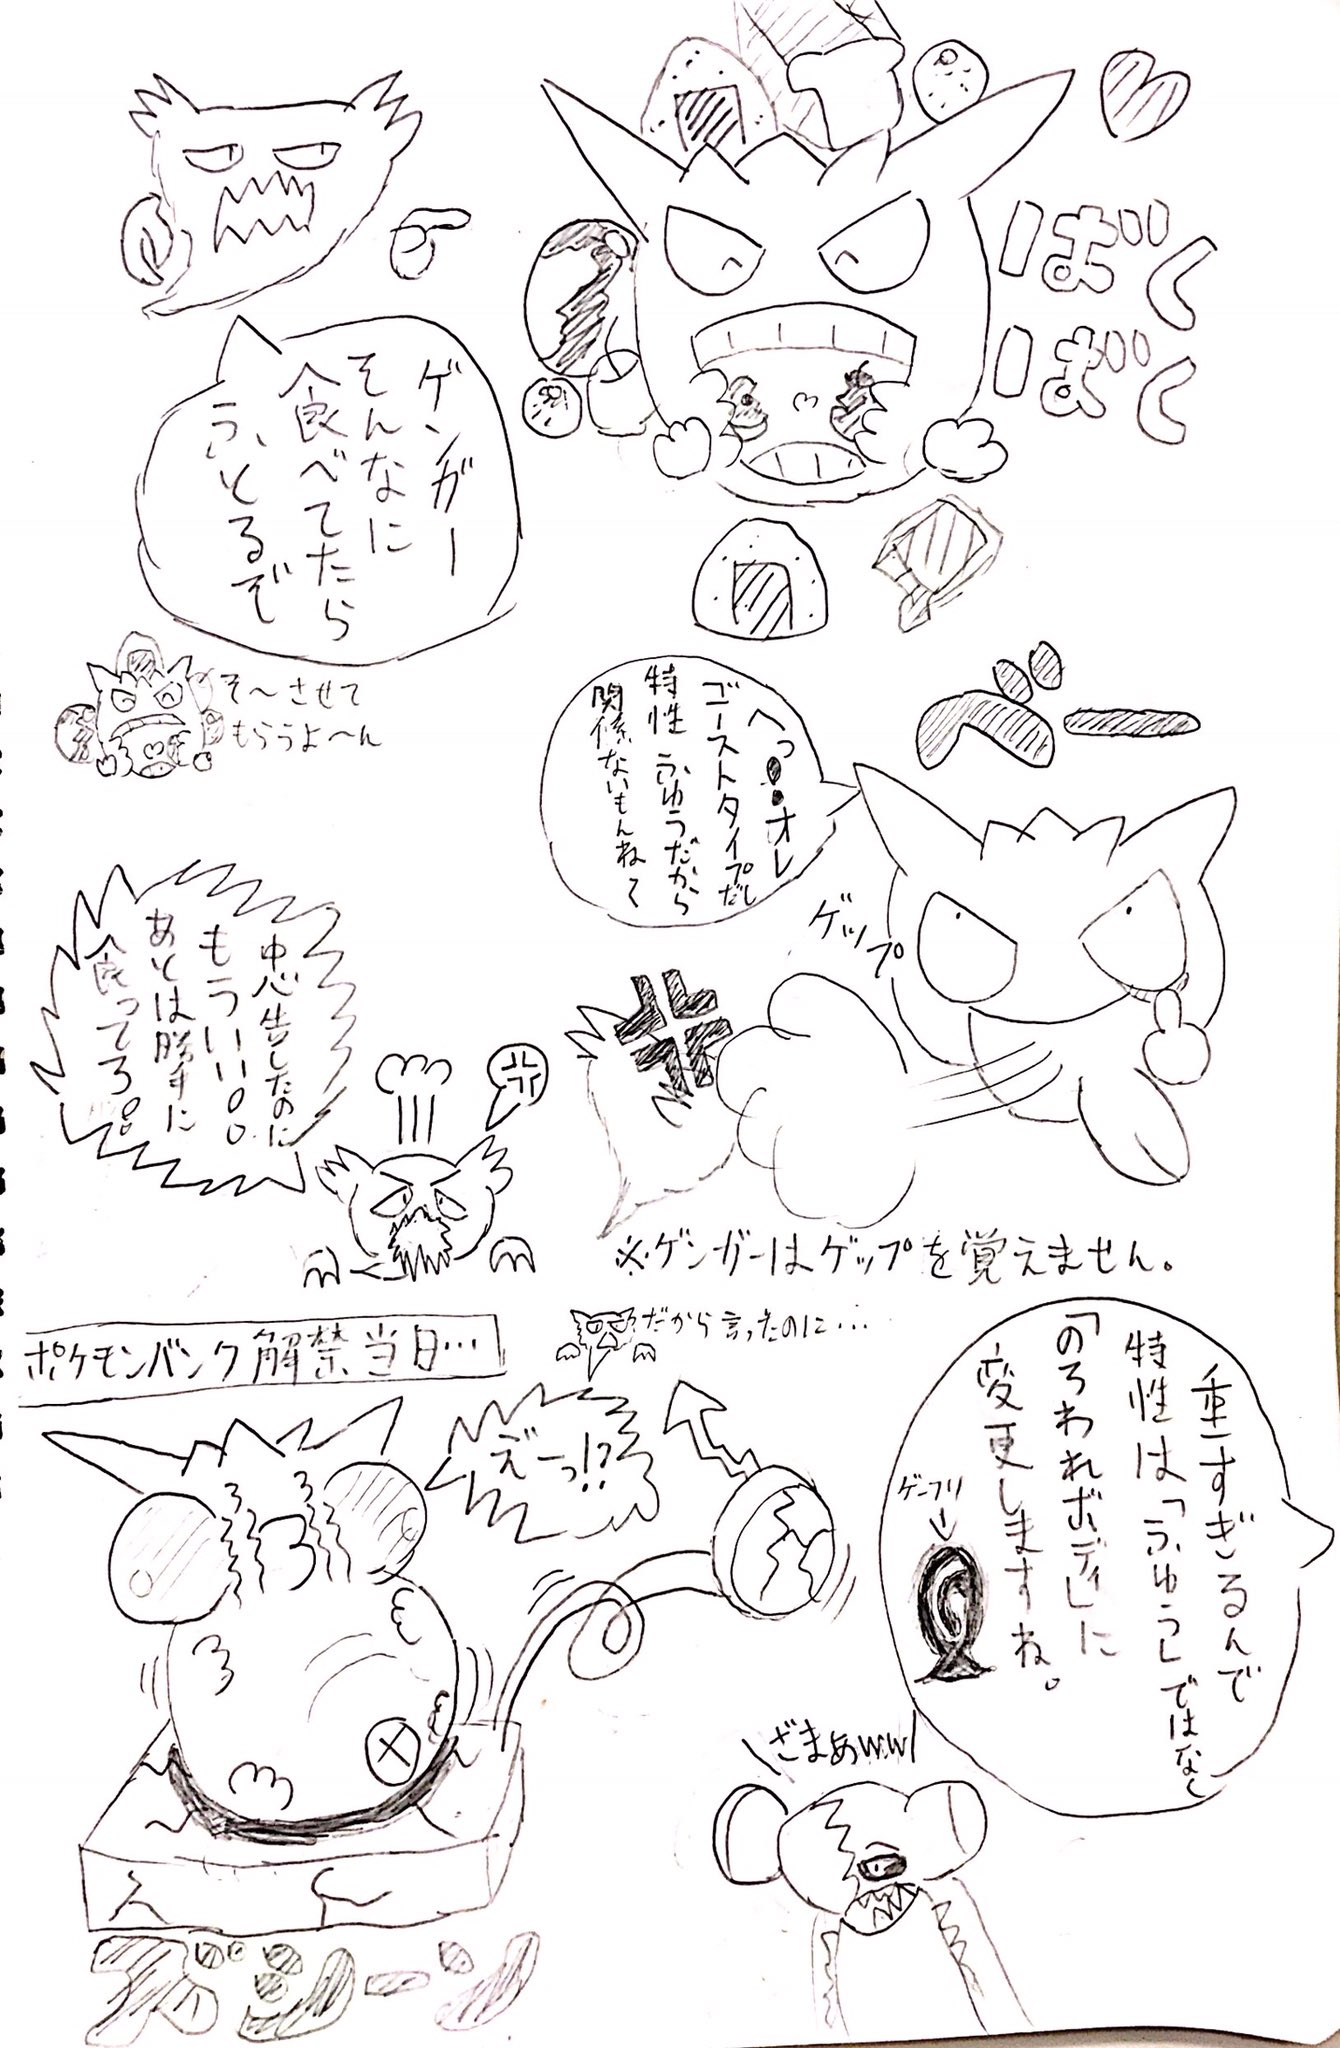 ばくばく
ゲンガー
そんなに
食べてたら
ふとるぞ
そ〜させて
もらうよ〜ん
べー
へっ!!オレ
ゴーストタイプだし
特性ふゆうだから
関係ないもんねて
ゲップ
忠告したのに
もういい。。
あとは勝手に
食ってろ。。
※ゲンガーはゲップを覚えません。
だから言ったのに...
ポケモンバンク解禁当日...
えーっ!?
重すぎるんで
特性は「ふゆう」ではなく
「のろわれボディ」に
変更しますね。
ゲーフリ
\ざまあww/
ズシーン